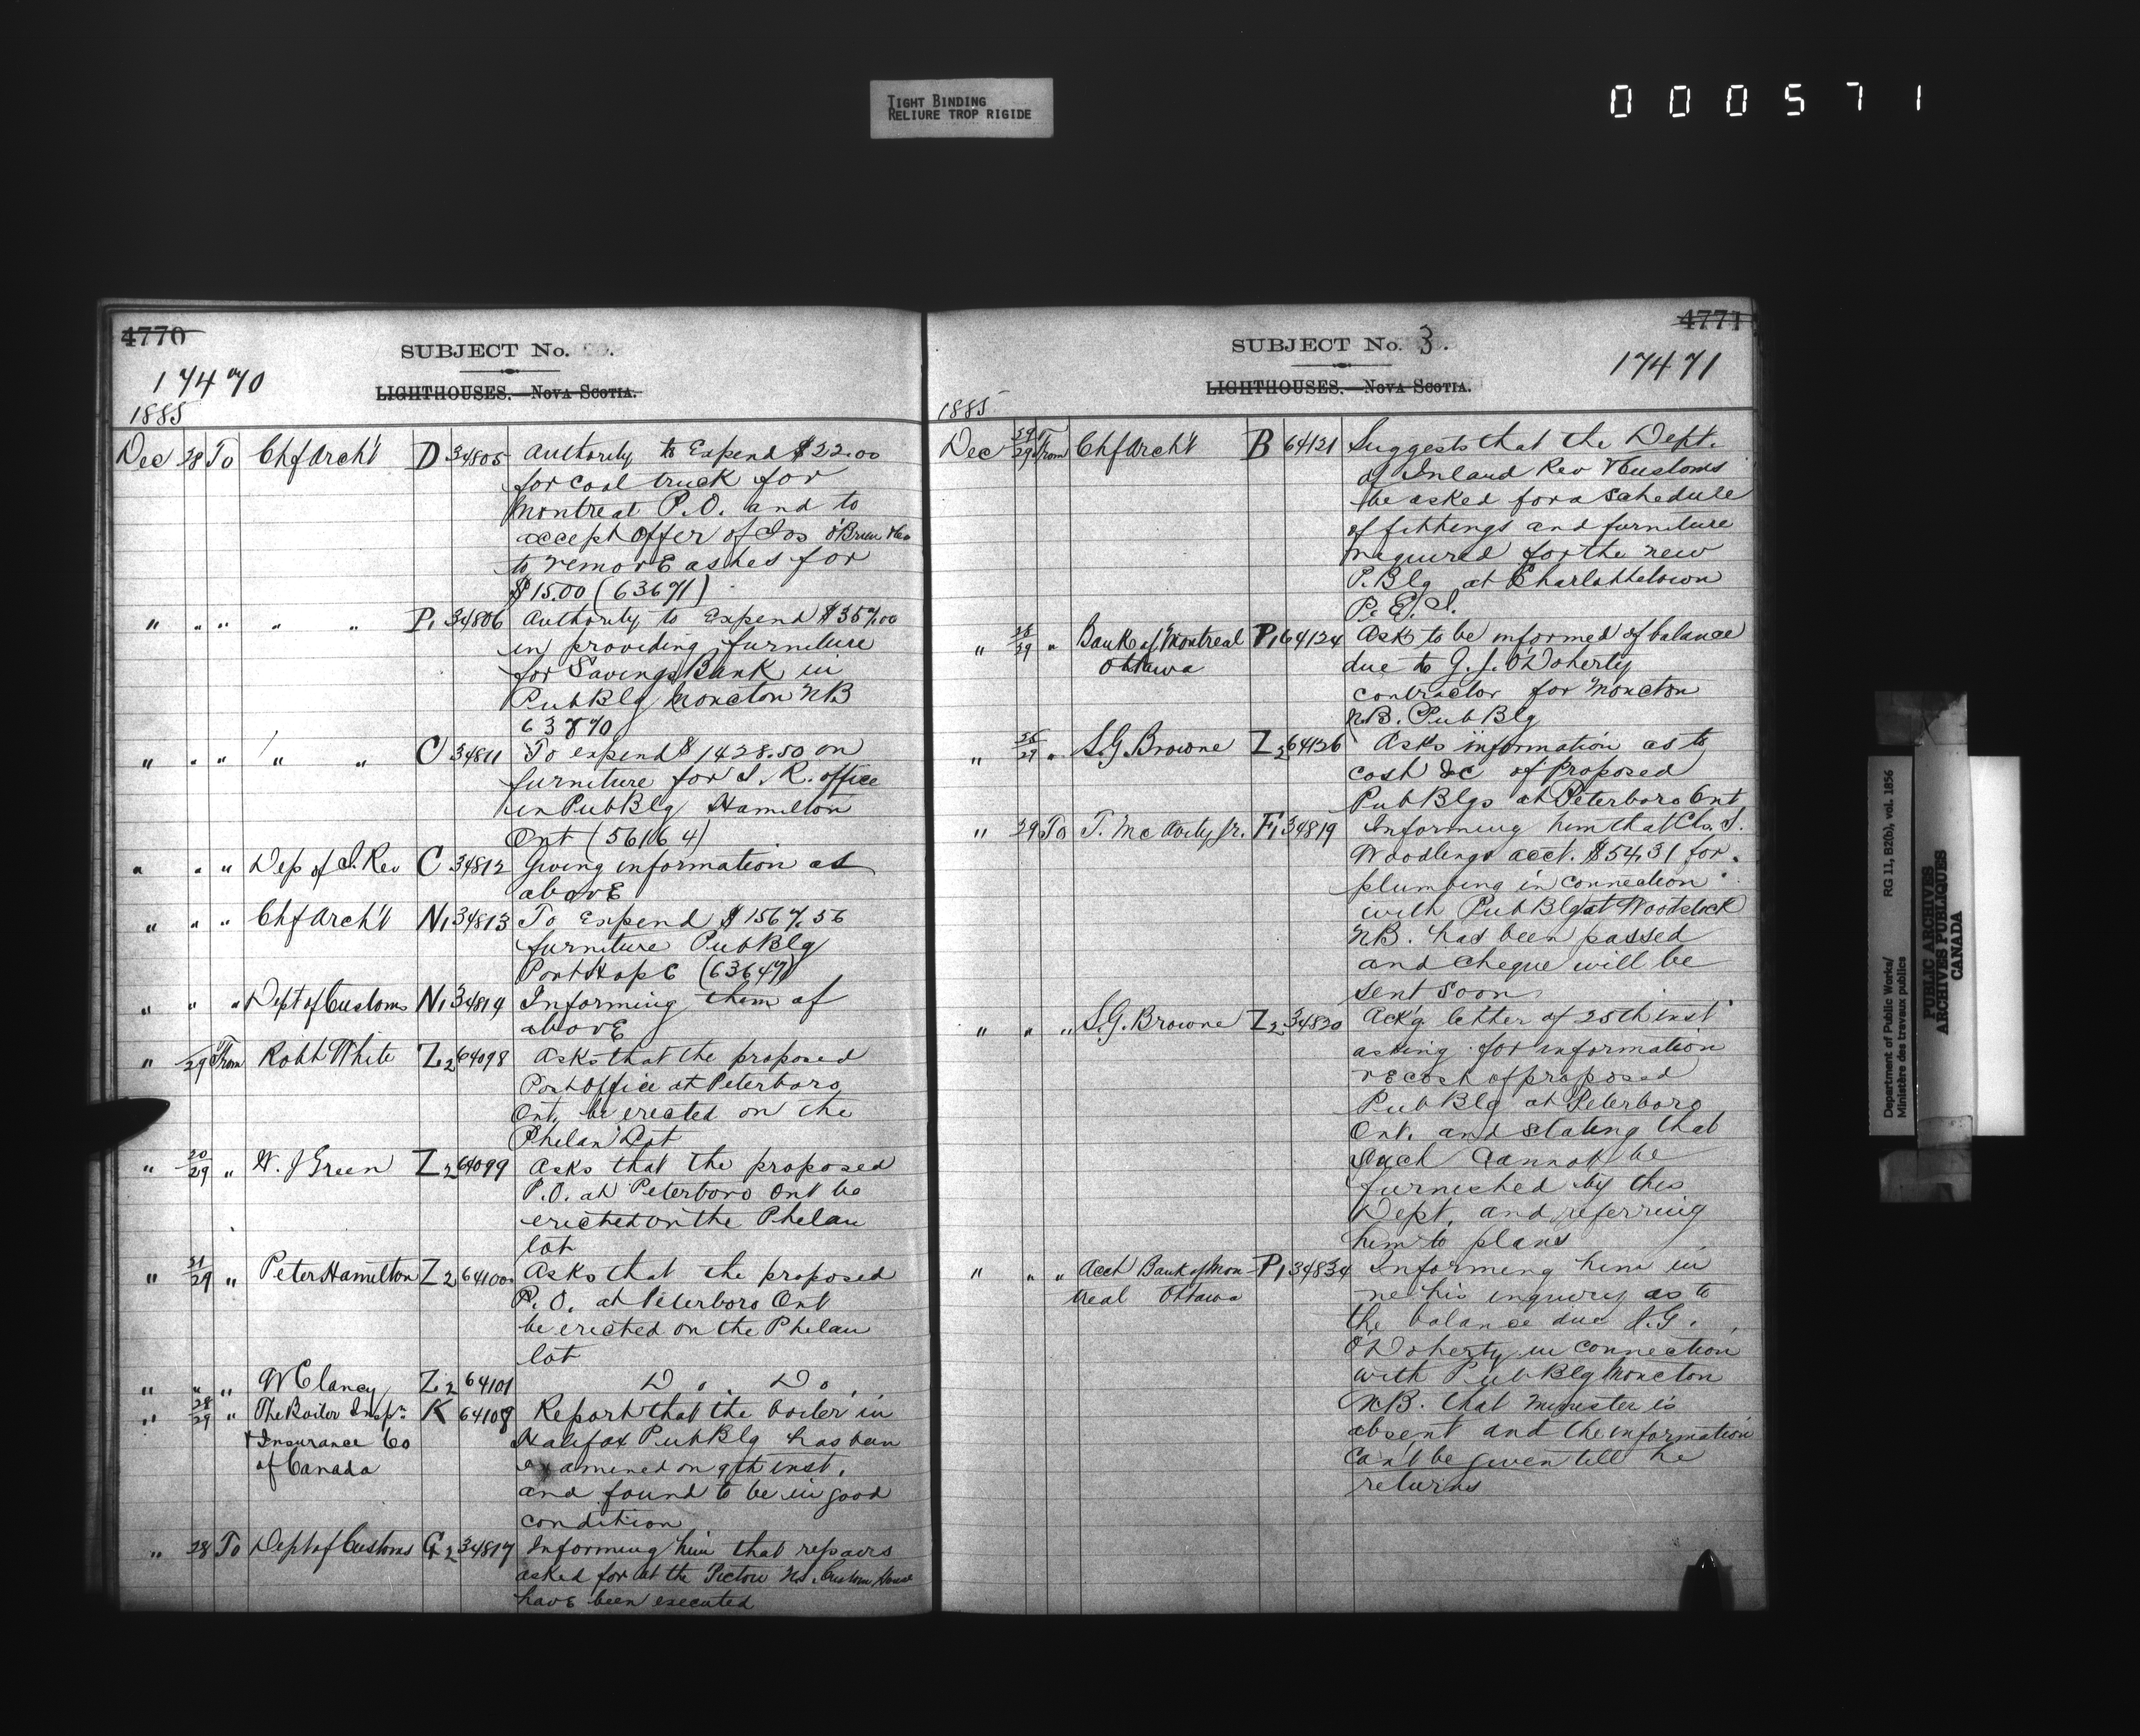 TIGHT BINDING
RELIURE TROP RIGIDE
000571
4770
SUBJECT No.
17470
LIGHTHOUSES.—NOVA SCOTIA.
1885
Dec 28 To Chf Arch't D 34805 Authority to Expend $22.00
for coal truck for
Montreal P.O. and to
accept offer of Jos O'Brien
to remove ashes for
$15.00 (63671)
" " " " " P1 34806 Authority to Expend $357.00
in providing furniture
for Savings Bank in
Pub Blg Moncton NB
63870
" " " " " C 34811 To expend $1428.50 on
furniture for I. R. office
in Pub Blg Hamilton
Ont (56164)
" " " Dep of I. Rev C 34812 Giving information as
above
" " " Chf Arch't N1 34813 To Expend $1567.56
furniture Pub Blg
Port Hope (63647)
" " " Dept of Customs N1 34814 Informing them of
above
" 29 From Robt White Z2 64098 Asks that the proposed
Post Office at Peterboro
Ont. be erected on the
Phelan Lot
" 20/29 " W. J Green Z2 64099 Asks that the proposed
P.O. at Peterboro Ont be
erected on the Phelan
lot
" 21/29 " Peter Hamilton Z2 64100 Asks that the proposed
P. O. at Peterboro Ont
be erected on the Phelan
lot
" " " W Clancy Z2 64101 Do. Do.
" 28/29 " The Boiler Insp'n K 64108 Report that the boiler in
& Insurance Co Halifax Pub Blg has been
of Canada examined on 9th inst.
and found to be in good
condition
" 28 To Dept of Customs G2 34817 Informing him that repairs
asked for at the Pictou NS. Custom House
have been executed
4771
SUBJECT No. 3.
17471
LIGHTHOUSES.—NOVA SCOTIA.
1885
Dec 29/29 From Chf Arch't B 64121 Suggests that the Dept.
of Inland Rev & Customs
be asked for a schedule
of fittings and furniture
required for the new
P. Blg at Charlottetown
P. E. I.
" 28/29 " Bank of Montreal P1 64124 Ask to be informed of balance
Ottawa due to G. J. O'Doherty
contractor for Moncton
N.B. Pub Blg
" 25/29 " S.G Browne Z2 64126 Asks information as to
cost &c of proposed
Pub Blgs at Peterboro Ont
" 29 To T. McAvity Jr. F1 34819 Informing him that
acct. $54.31 for
plumbing in connection
with Pub Blg at Woodstock
NB. has been passed
and cheque will be
sent soon
" " " S.G. Browne Z2 34820 Ack'g letter of 25th inst
asking for information
re cost of proposed
Pub Blg at Peterboro
Ont. and stating that
such cannot be
furnished by this
Dept. and referring
him to plans
" " " Acct Bank of Mon- P1 34834 Informing him in
treal Ottawa re his inquiry as to
the balance due J.G.
O'Doherty in connection
with Pub Blg Moncton
NB. that Minister is
absent and the information
can't be given till he
returns
Department of Public Works/ RG 11, B2(b), vol. 1856
Ministère des travaux publics
PUBLIC ARCHIVES
ARCHIVES PUBLIQUES
CANADA